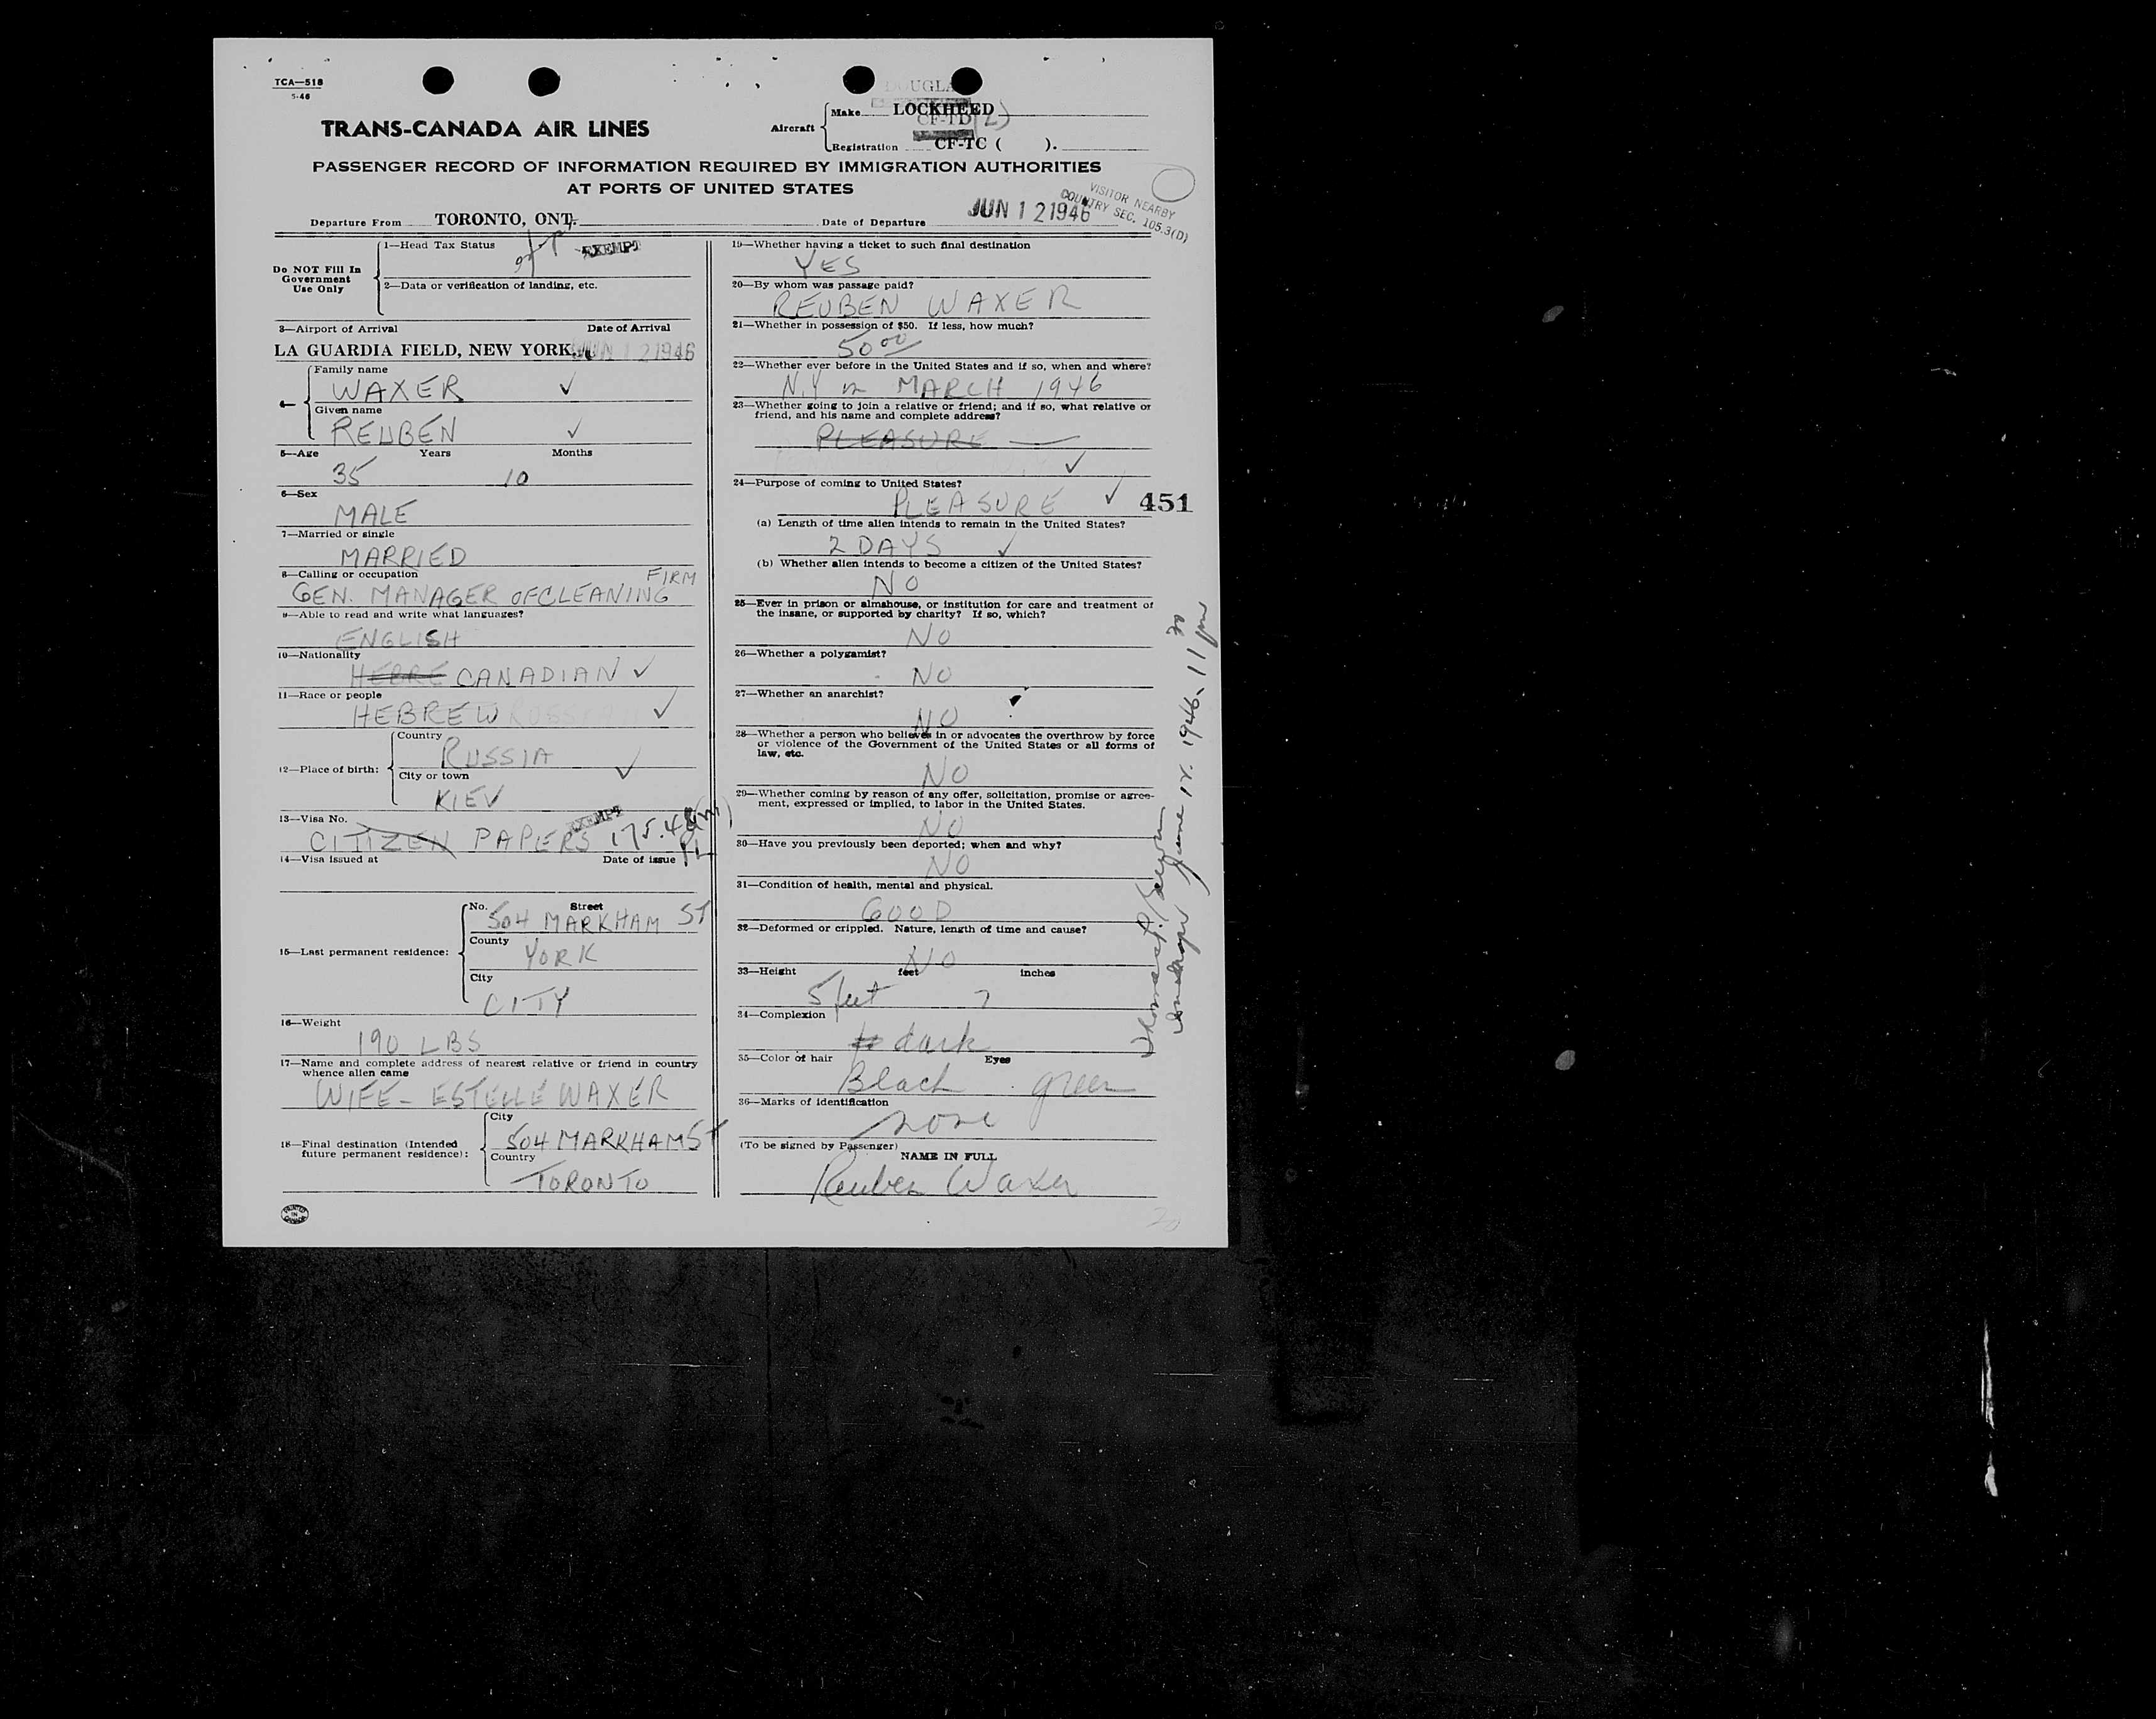 TCA—518
5-46
TRANS-CANADA AIR LINES
DOUGLA
Aircraft
Make LOCKHEED
CF-TD (L)
Registration CF-TC ( ).
PASSENGER RECORD OF INFORMATION REQUIRED BY IMMIGRATION AUTHORITIES
AT PORTS OF UNITED STATES
VISITOR NEARBY
COUNTRY SEC. 105.3(D)
Departure From TORONTO, ONT. Date of Departure JUN 12 1946
Do NOT Fill In
Government
Use Only
1—Head Tax Status EXEMPT
2—Data or verification of landing, etc.
3—Airport of Arrival Date of Arrival
LA GUARDIA FIELD, NEW YORK. JUN 12 1946
4—
Family name
WAXER ✓
Given name
REUBEN ✓
5—Age Years Months
35 10
6—Sex
MALE
7—Married or single
MARRIED
8—Calling or occupation
GEN. MANAGER OF CLEANING FIRM
9—Able to read and write what languages?
ENGLISH
10—Nationality
HEBRE CANADIAN ✓
11—Race or people
HEBREW ✓
12—Place of birth:
Country
RUSSIA
City or town ✓
KIEV
13—Visa No. EXEMPT
CITIZEN PAPERS 175.48(m)
14—Visa issued at Date of issue
15—Last permanent residence:
No. Street
504 MARKHAM ST
County
YORK
City
CITY
16—Weight
190 LBS
17—Name and complete address of nearest relative or friend in country
whence alien came
WIFE - ESTELLE WAXER
18—Final destination (Intended
future permanent residence):
City
504 MARKHAM ST
Country
TORONTO
PRINTED
IN
CANADA
19—Whether having a ticket to such final destination
YES
20—By whom was passage paid?
REUBEN WAXER
21—Whether in possession of $50. If less, how much?
50 00
22—Whether ever before in the United States and if so, when and where?
N.Y in MARCH 1946
23—Whether going to join a relative or friend; and if so, what relative or
friend, and his name and complete address?
PLEASURE —
✓
24—Purpose of coming to United States?
PLEASURE ✓ 451
(a) Length of time alien intends to remain in the United States?
2 DAYS ✓
(b) Whether alien intends to become a citizen of the United States?
NO
25—Ever in prison or almshouse, or institution for care and treatment of
the insane, or supported by charity? If so, which?
NO
26—Whether a polygamist?
NO
27—Whether an anarchist?
NO
28—Whether a person who believes in or advocates the overthrow by force
or violence of the Government of the United States or all forms of
law, etc.
NO
29—Whether coming by reason of any offer, solicitation, promise or agree-
ment, expressed or implied, to labor in the United States.
NO
30—Have you previously been deported; when and why?
NO
31—Condition of health, mental and physical.
GOOD
32—Deformed or crippled. Nature, length of time and cause?
NO
33—Height feet inches
5 feet 7
34—Complexion
dark
35—Color of hair Eyes
Black green
36—Marks of identification
none
(To be signed by Passenger)
NAME IN FULL
Reuben Waxer
June 12. 1946 11 30 pm